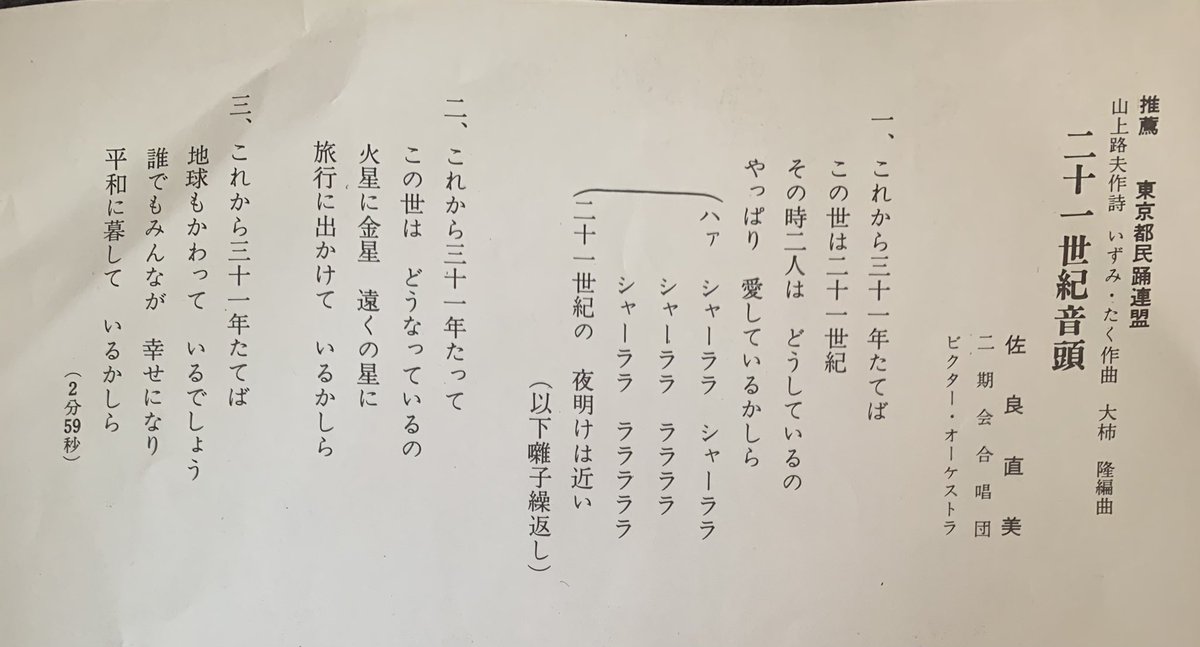 推薦　東京都民踊連盟
山上路夫作詩　いずみ・たく作曲　大柿　隆編曲
二十一世紀音頭
佐良直美
二期会合唱団
ビクター・オーケストラ
一、これから三十一年たてば
この世は二十一世紀
その時二人は　どうしているの
やっぱり　愛しているかしら
（ハァ　シャーララ　シャーララ
シャーララ　ララララ
シャーララ　ララララララ
（二十一世紀の　夜明けは近い
（以下囃子繰返し）
二、これから三十一年たって
この世は　どうなっているの
火星に金星　遠くの星に
旅行に出かけて　いるかしら
三、これから三十一年たてば
地球もかわって　いるでしょう
誰でもみんなが　幸せになり
平和に暮して　いるかしら
（2分59秒）